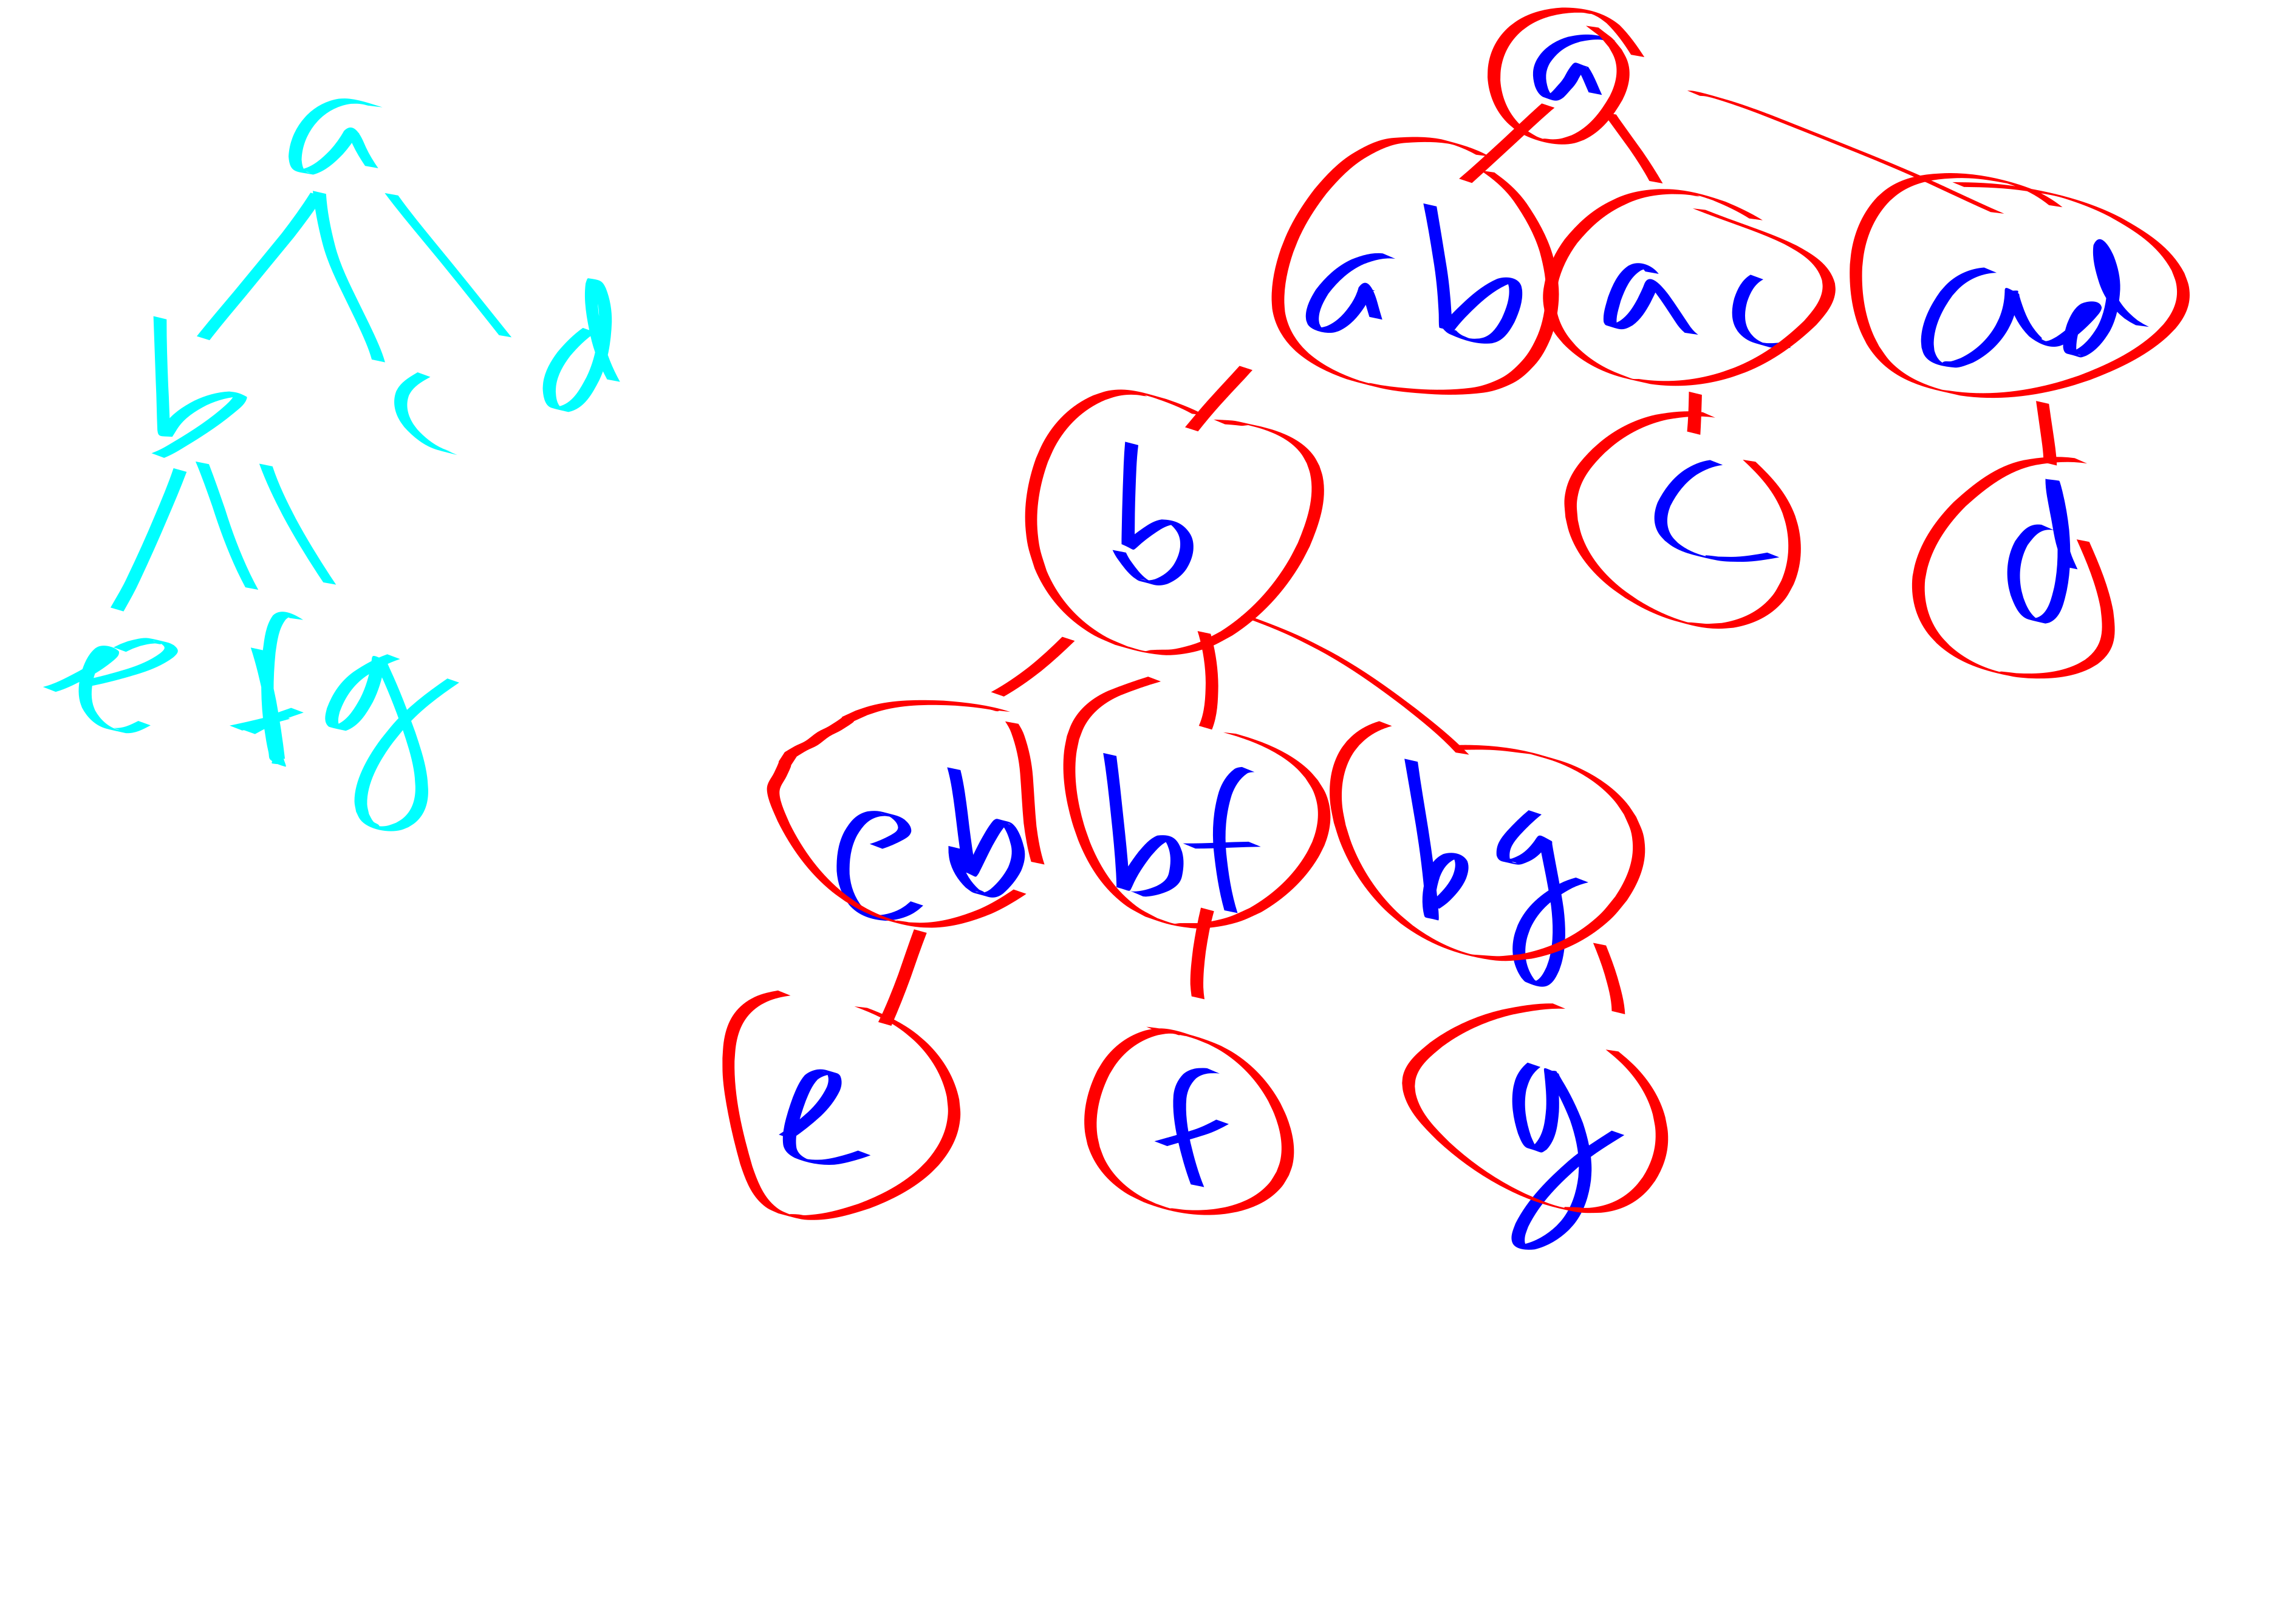 a
b c d
e f g
a
ab ac ad
b c d
eb bf bg
e f g